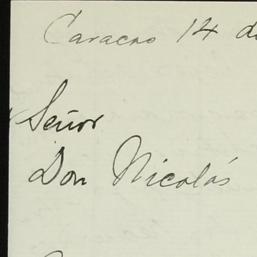 Caracas 14 de
Señor
Don Nicolás